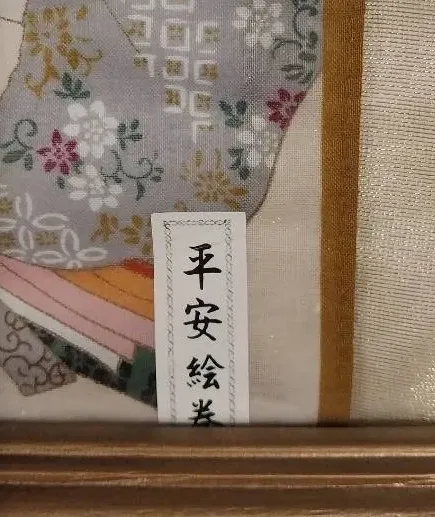 平安絵巻